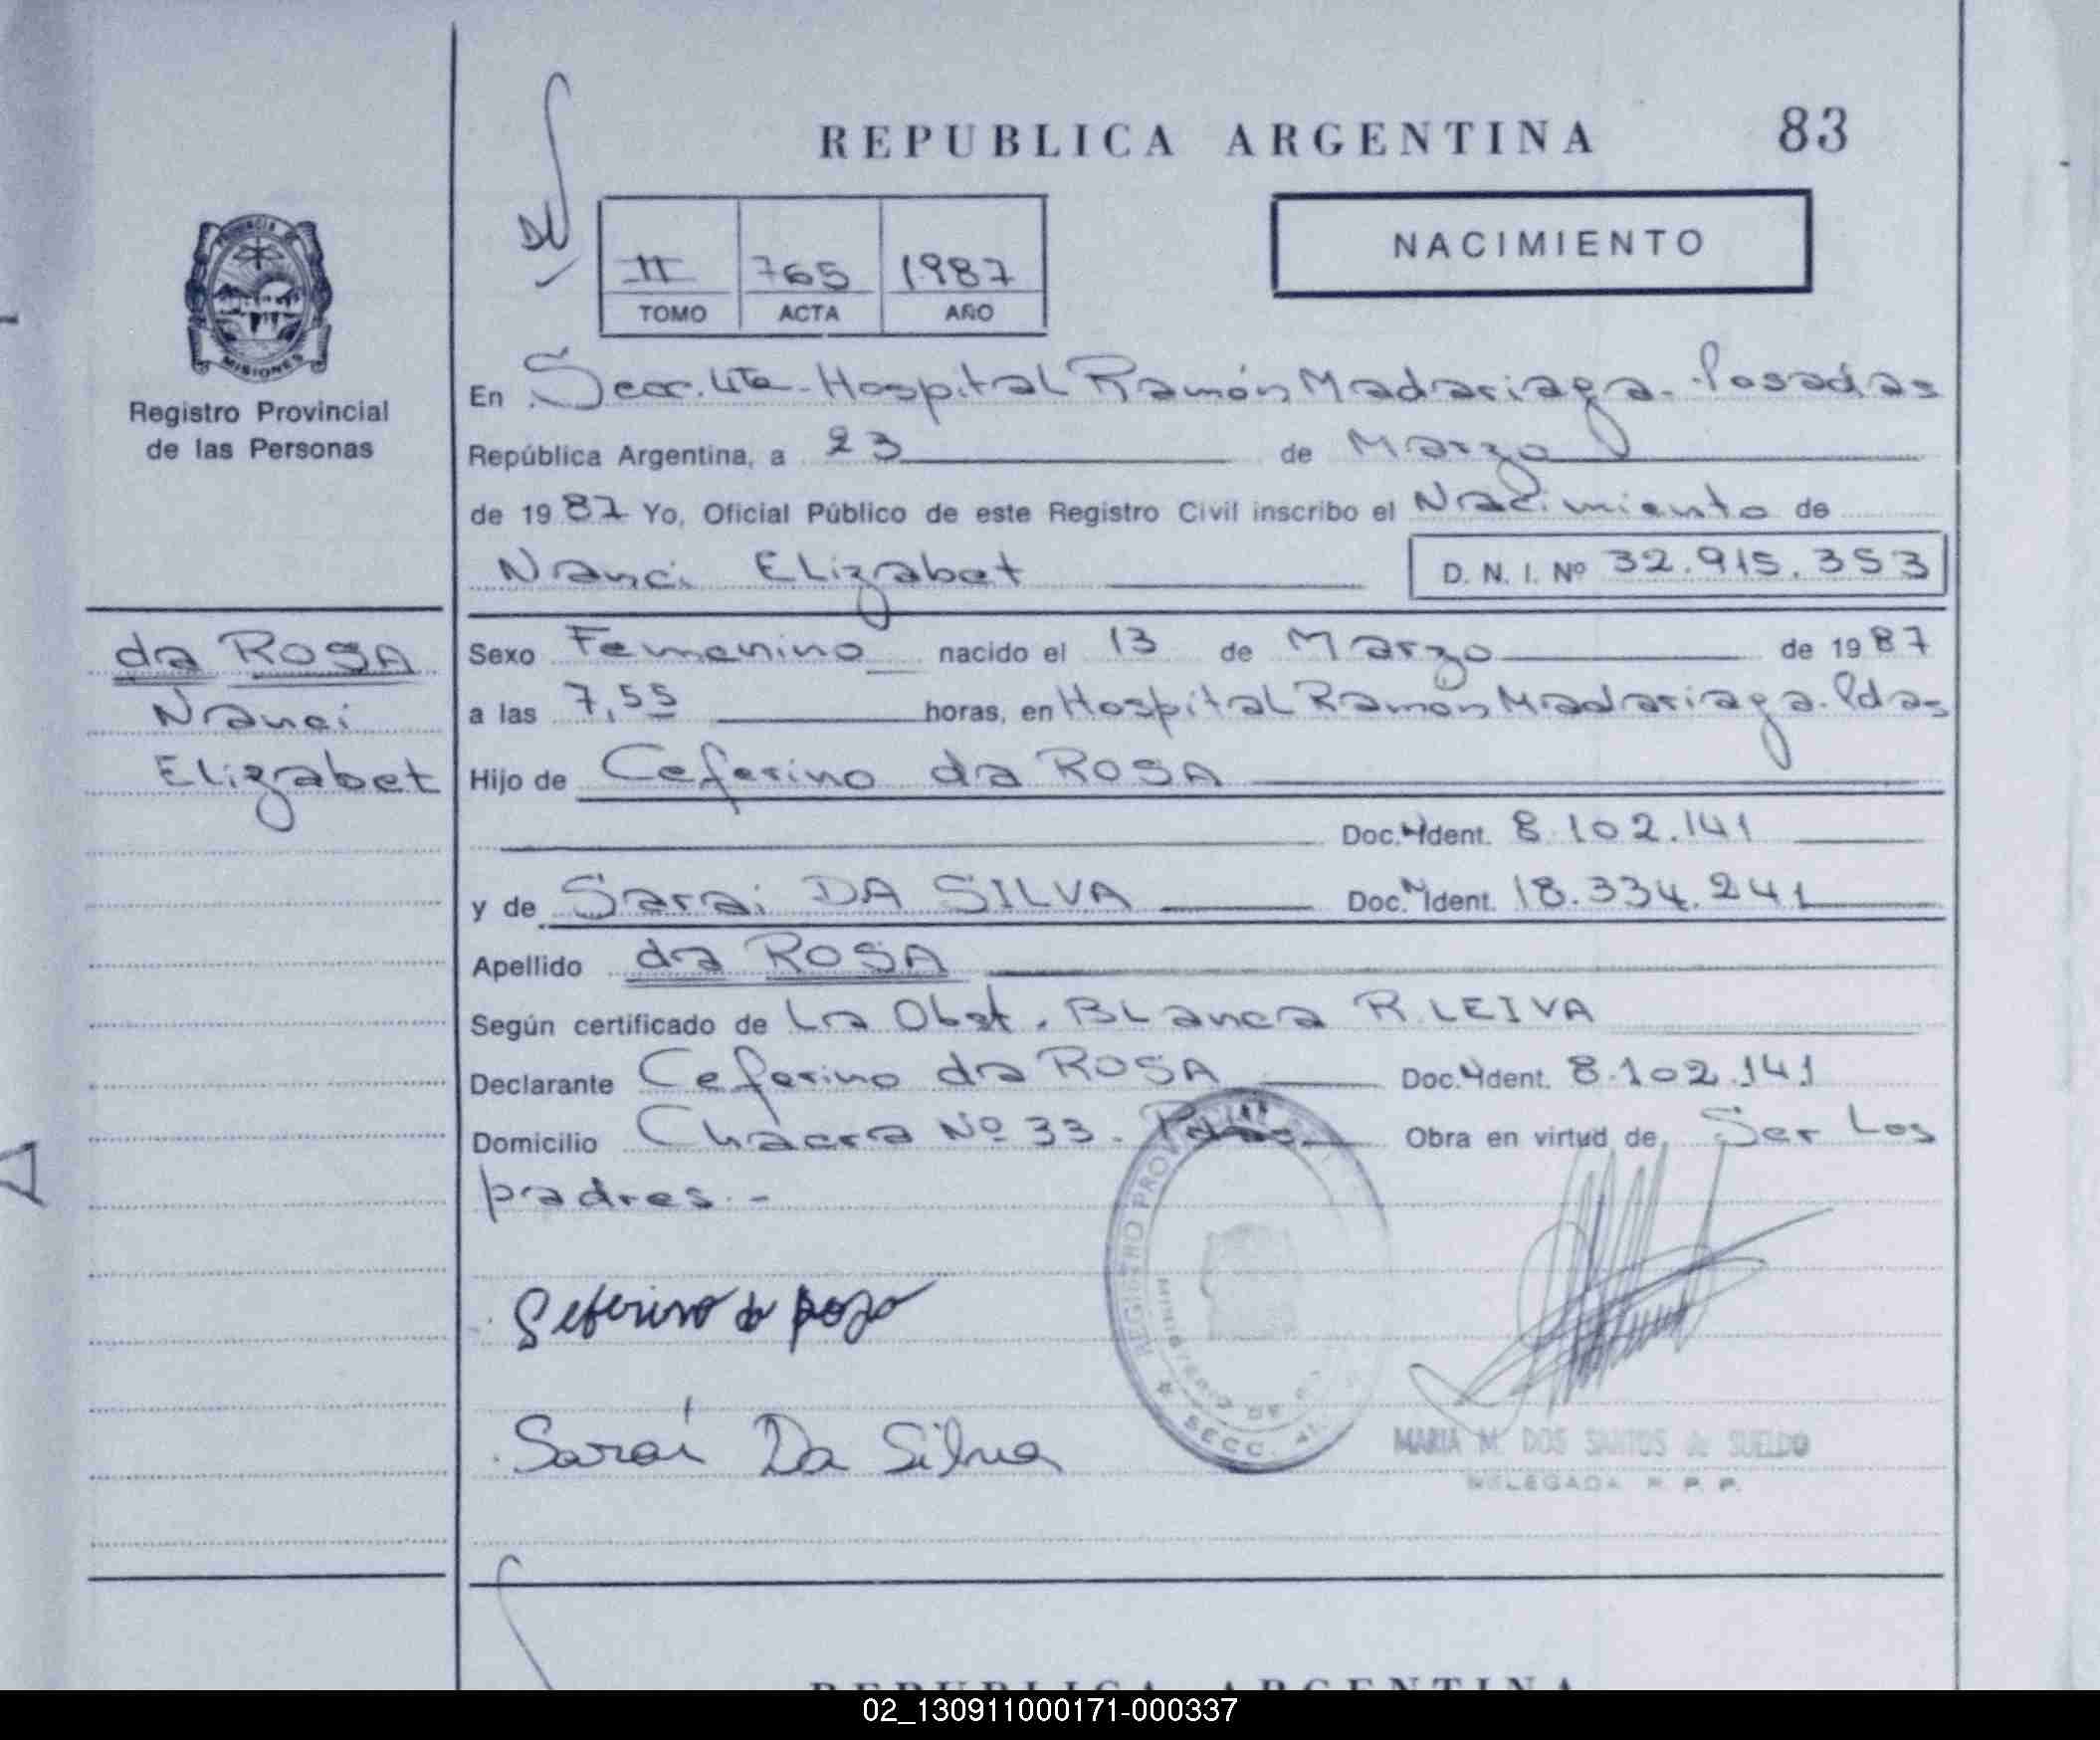 REPUBLICA ARGENTINA
83
NACIMIENTO
II 765 1987
TOMO ACTA AÑO
PROVINCIA DE
MISIONES
Registro Provincial
de las Personas
En Secc. 4ta - Hospital Ramón Madariaga - Posadas
República Argentina, a 23 de Marzo
de 1987 Yo, Oficial Público de este Registro Civil inscribo el Nacimiento de
Nanci Elizabet D. N. I. Nº 32.915.353
da ROSA
Nanci
Elizabet
Sexo Femenino nacido el 13 de Marzo de 1987
a las 7,55 horas, en Hospital Ramón Madariaga. Pdas
Hijo de Ceferino da ROSA
Doc. Ident. 8.102.141
y de Sarai DA SILVA Doc. Ident. 18.334.241
Apellido da ROSA
Según certificado de La Obst. Blanca R. LEIVA
Declarante Ceferino da ROSA Doc. Ident. 8.102.141
Domicilio Chacra Nº 33. Pdas Obra en virtud de Ser Los
padres.-
Seferino da Rosa
Saraí Da Silva
REGISTRO PROVINCIAL
MINISTERIO DE
SECC. 4ª
MARIA M. DOS SANTOS de SUELDO
DELEGADA R. P. P.
REPUBLICA ARGENTINA
02_130911000171-000337